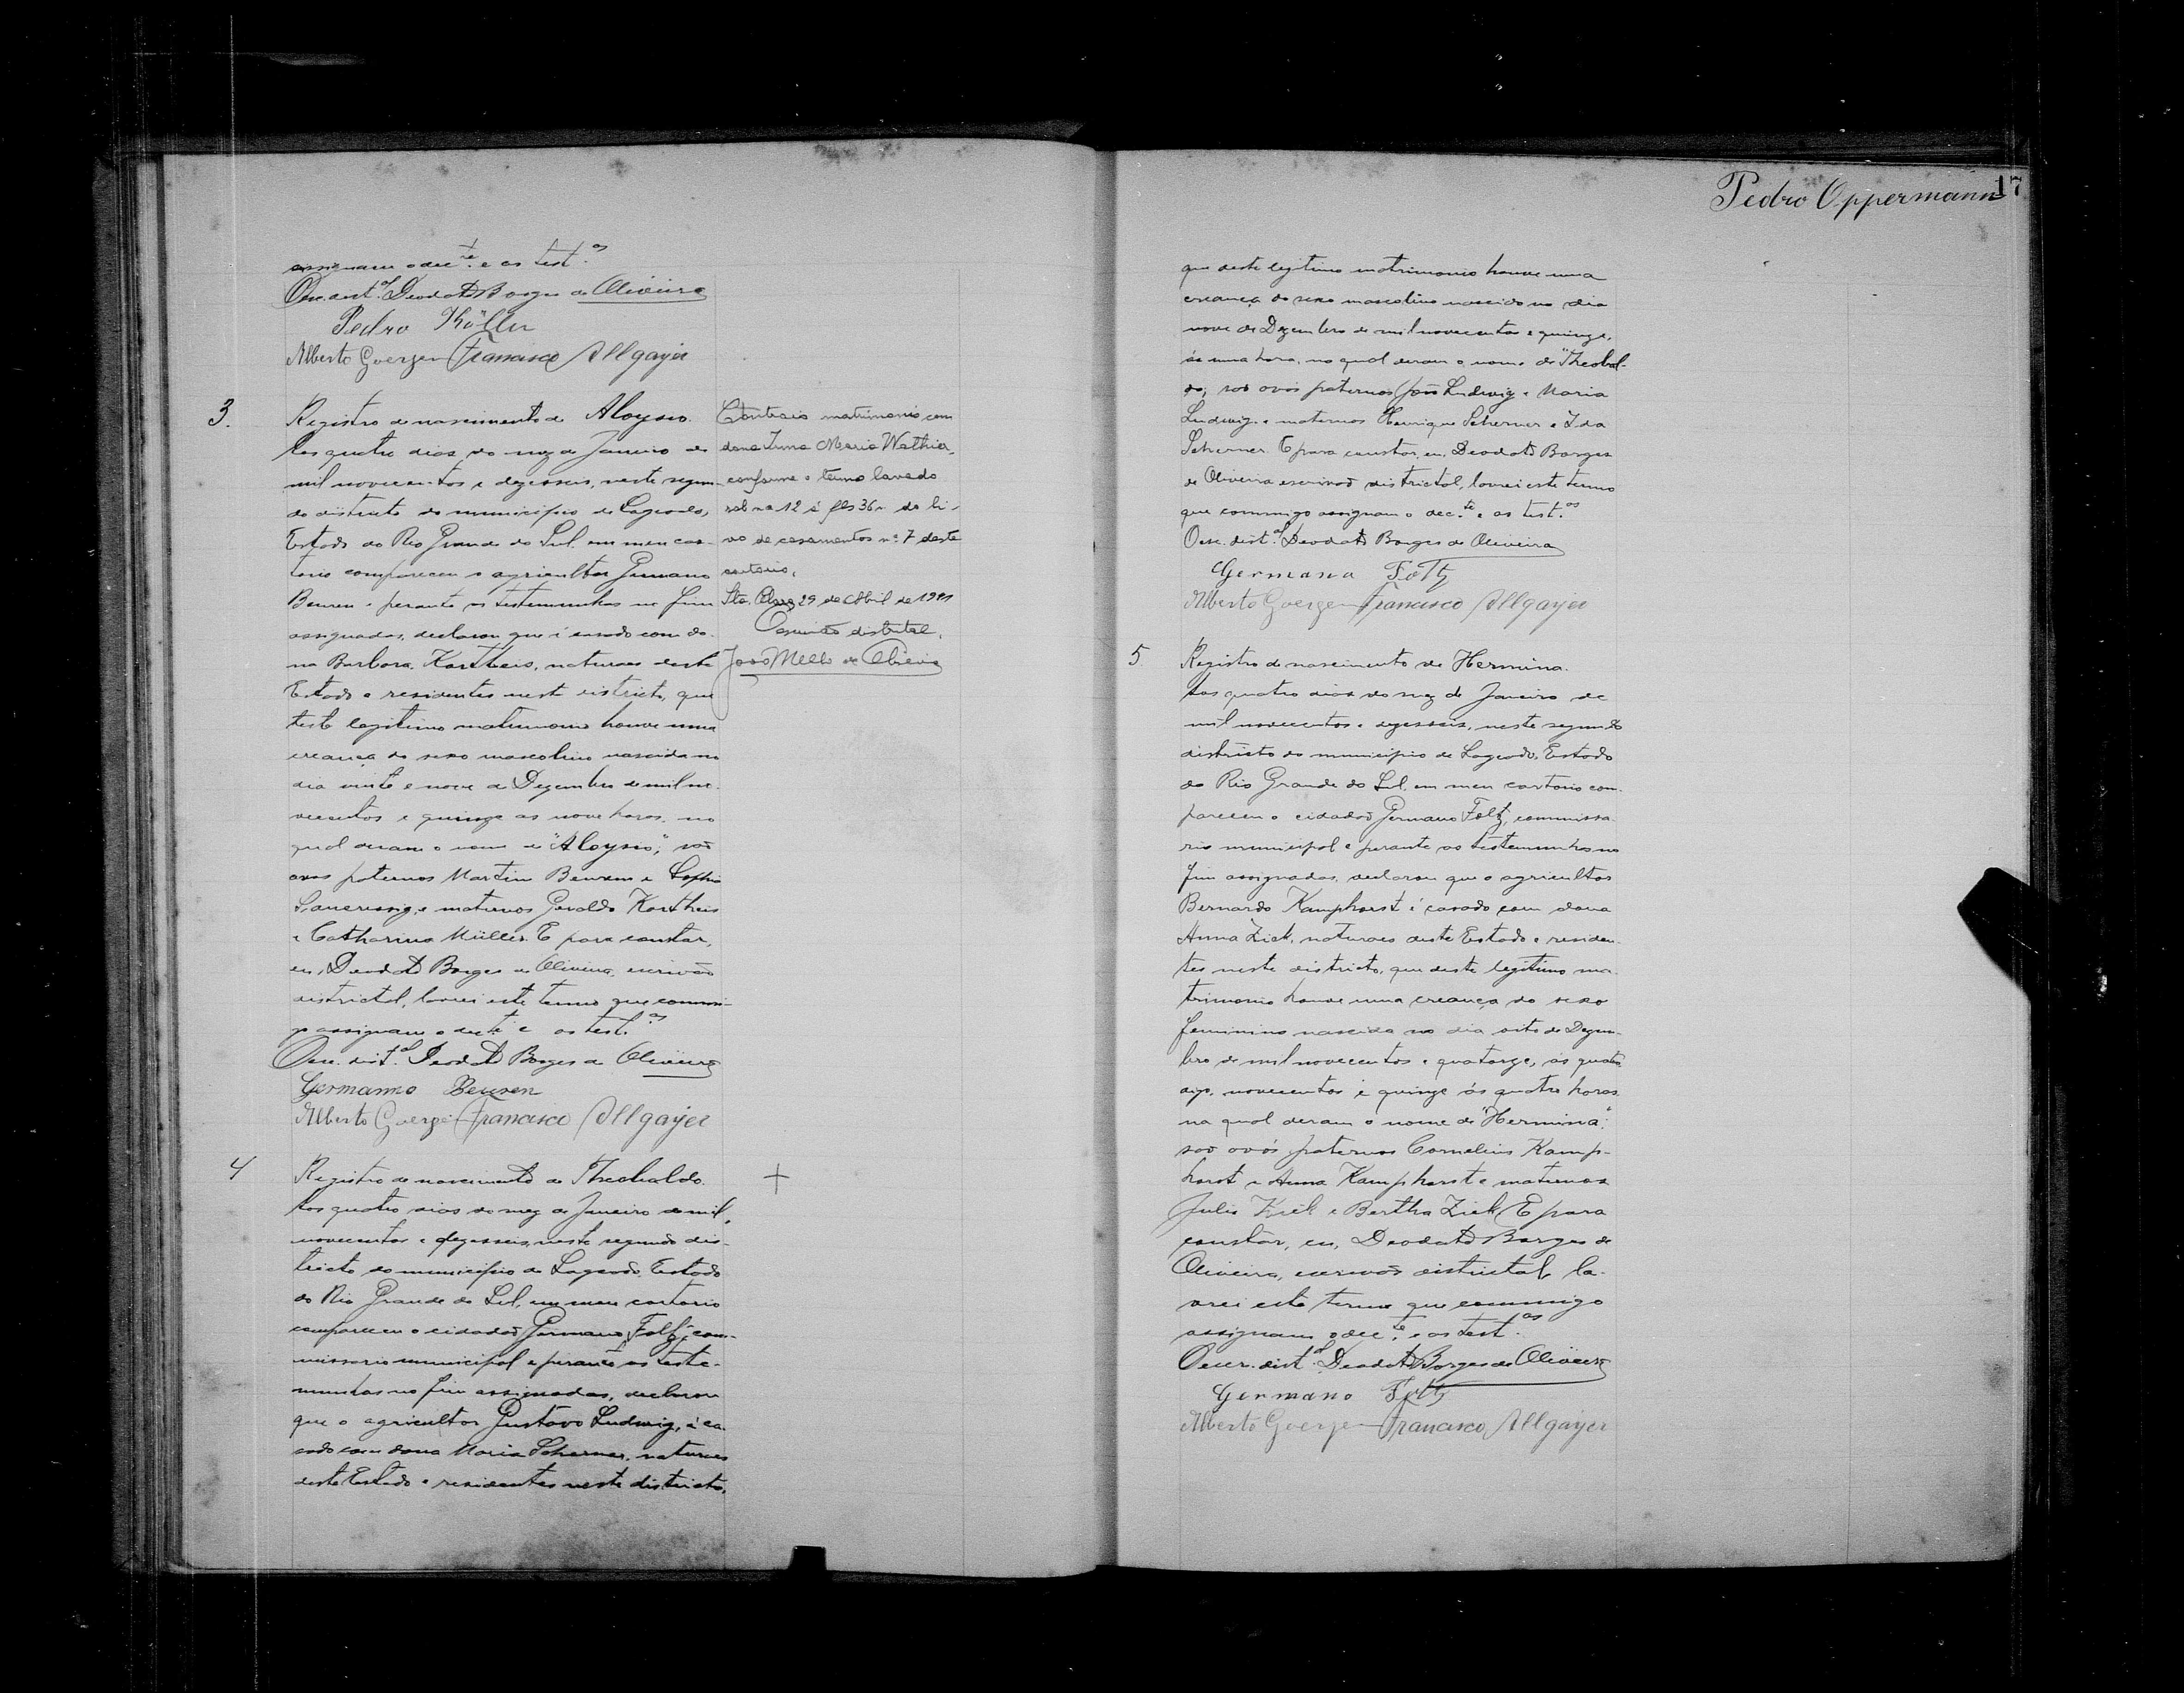 assignam o dec.te e as test.as
O esc. dist.al Deodato Borges de Oliveira
Pedro Köller
Alberto Goergen Francisco Allgayer
3.
Registro de nascimento de Aloysio.
Aos quatro dias do mez de Janeiro de
mil novecentos e dezesseis, neste segun-
do districto do municipio de Lageado,
Estado do Rio Grande do Sul, em meu car-
torio compareceu o agricultor Germano
Beuren e perante as testemunhas no fim
assignadas, declarou que é casado com do-
na Barbora Kartheis, naturaes deste
Estado e residentes neste districto, que
deste legitimo matrimonio houve uma
creança do sexo masculino nascida no
dia vinte e nove de Dezembro de mil no-
vecentos e quinze as nove horas, no
qual deram o nome de "Aloysio"; são
avos paternos Martin Beuren e Sophia
e maternos Geraldo Kartheis
e Catharina Müller. E para constar,
eu, Deodato Borges de Oliveira, escrivão
districtal, lavrei este termo que commi-
go assignam o dec.te e as test.as
O esc. dist.al Deodato Borges de Oliveira
Germanno Beuren
Alberto Goergen Francisco Allgayer
Contraio matrimonio com
dona Irma Maria Wathier,
conforme o termo lavrado
sob no 12 á fls 36 v do li-
vro de casamentos nº. 7 deste
cartorio.
Sta. Clara 29 de Abril de 1941
O escrivão distrital,
João Mello de Oliveira
4
Registro de nascimento de Theobaldo.
+
Aos quatro dias do mez de Janeiro de mil
novecentos e dezesseis, neste segundo dis-
tricto do municipio de Lageado, Estado
do Rio Grande do Sul, em meu cartorio
compareceu o cidadão Germano Foltz, com-
missario municipal e perante as teste-
munhas no fim assignadas, declarou
que o agricultor Gustavo Ludwig, é ca-
sado com dona Maria Scherner, naturaes
deste Estado e residentes neste districto,
Pedro Oppermann
17
que deste legitimo matrimonio houve uma
creança do sexo masculino nascido no dia
nove de Dezembro de mil novecentos e quinze,
ás uma hora, no qual deram o nome de "Theobal-
do; são avós paternos João Ludwig e Maria
Ludwig e maternos Henrique Scherner e Ida
Scherner. E para constar, eu, Deodato Borges
de Oliveira escrivão districtal, lavrei este termo
que commigo assignam o dec.te e as test.as
O esc. dist.al Deodato Borges de Oliveira
Germano Foltz
Alberto Goergen Francisco Allgayer
5
Registro de nascimento de Hermina.
Aos quatro dias do mez de Janeiro de
mil novecentos e dezesseis, neste segundo
districto do municipio de Lageado, Estado
do Rio Grande do Sul, em meu cartorio com-
pareceu o cidadão Germano Foltz, commissa-
rio municipal e perante as testemunhas no
fim assignadas, declarou que o agricultor
Bernardo Kamphorst é casado com dona
Anna Ziek, naturaes deste Estado e residen-
tes neste districto, que deste legitimo ma-
trimonio houve uma creança do sexo
feminino nascida no dia oito de Dezem-
bro de mil novecentos e quatorze, ás quatro
digo, novecentos e quinze ás quatro horas
na qual deram o nome de "Hermina".
são avós paternos Cornelius Kamp-
horst e Anna Kamphorst e maternos
Julio Ziek e Bertha Ziek. E para
constar, eu, Deodato Borges de
Oliveira, escrivão districtal, la-
vrei este termo que commigo
assignam o dec.te e as test.as
O escr. dist.al Deodato Borges de Oliveira
Germano Foltz
Alberto Goergen Francisco Allgayer